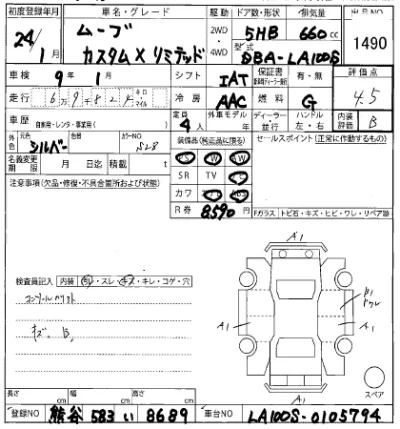 初度登録年月 車名・グレード 駆動 ドア数・形状 排気量 出品NO
24/1月 ムーブ カスタムX リミテッド 2WD 4WD 5HB 660cc 1490
型式 DBA-LA100S
車検 9年 1月 シフト IAT 保証書 有・無 評価点
走行 6万9千824 キロ マイル 冷房 AAC 燃料 G 4.5
車歴 自家用・レンタ・事業用( ) 定員 4人 外車モデル 年 ディーラー・並行 ハンドル 左・右 内装評価 B
外色 元色 シルバー 色 カラーNO S28 装備品(純正品に限る) セールスポイント(正常に作動するもの)
名義変更期限 月 日迄 積載 t PS PW AW
注意事項(欠品・修復・不具合箇所および状態) SR TV
カワ
R券 8590
Fガラス トビ石・キズ・ヒビ・ワレ・リペア跡
A1
検査員記入 内装 ・スレ・キズ・キレ・コゲ・穴
キズ、B、
A1 A1
A1
スペア
長さ cm 幅 cm 高さ cm
登録NO 熊谷 583 い 8689 車台NO LA100S-0105794